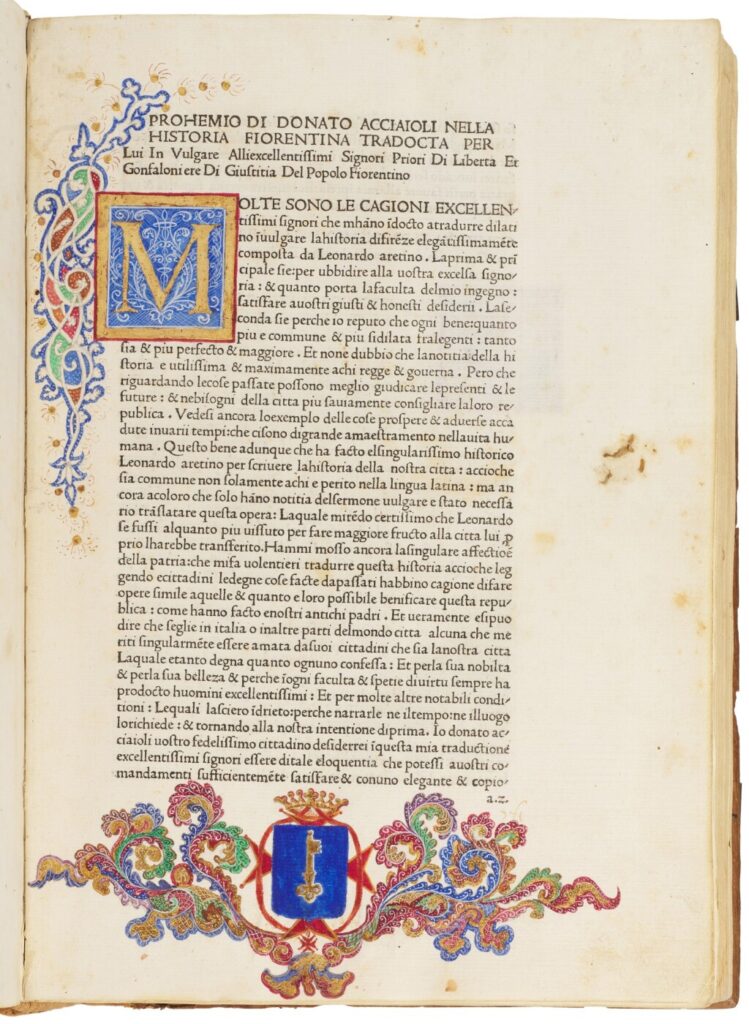 PROHEMIO DI DONATO ACCIAIOLI NELLA
HISTORIA FIORENTINA TRADOCTA PER
Lui In Vulgare Alliexcellentissimi Signori Priori Di Liberta Et
Gonfaloniere Di Giustitia Del Popolo Fiorentino
MOLTE SONO LE CAGIONI EXCELLEN-
tissimi signori che mhāno īdocto atradurre dilati
no īuulgare lahistoria difirēze elegātissimamēte
composta da Leonardo aretino . Laprima & prī
cipale sie:per ubbidire alla uostra excelsa signo-
ria : & quanto porta lafaculta delmio ingegno :
satisfare auostri giusti & honesti desiderii . Lase-
conda sie perche io reputo che ogni bene:quanto
piu e commune & piu sidilata fralegenti : tanto
sia & piu perfecto & maggiore . Et none dubbio che lanotitia della hi
storia e utilissima & maximamente achi regge & gouerna . Pero che
riguardando lecose passate possono meglio giudicare lepresenti & le
future : & nebisogni della citta piu sauiamente consigliare laloro re-
publica . Vedesi ancora loexemplo delle cose prospere & aduerse acca
dute inuarii tempi:che cisono digrande amaestramento nellauita hu-
mana . Questo bene adunque che ha facto elsingularissimo historico
Leonardo aretino per scriuere lahistoria della nostra citta : accioche
sia commune non solamente achi e perito nella lingua latina : ma an
cora acoloro che solo hāno notitia delsermone uulgare e stato necessa
rio trāslatare questa opera: Laquale mirēdo certissimo che Leonardo
se fussi alquanto piu uissuto per fare maggiore fructo alla citta lui ꝓ
prio lharebbe transferito.Hammi mosso ancora lasingulare affectiōe
della patria:che mifa uolentieri tradurre questa historia accioche leg
gendo ecittadini ledegne cose facte dapassati habbino cagione difare
opere simile aquelle & quanto e loro possibile benificare questa repu-
blica : come hanno facto enostri antichi padri . Et ueramente esipuo
dire che seglie in italia o inaltre parti delmondo citta alcuna che me
riti singularmēte essere amata dasuoi cittadini che sia lanostra citta
Laquale etanto degna quanto ognuno confessa : Et perla sua nobilta
& perla sua belleza & perche īogni faculta & spetie diuirtu sempre ha
prodocto huomini excellentissimi : Et per molte altre notabili condi-
tioni : Lequali lasciero īdrieto:perche narrarle ne iltempo:ne illuogo
lorichiede : & tornando alla nostra intentione diprima. Io donato ac-
ciaioli uostro fedelissimo cittadino desiderrei īquesta mia traductiōe
excellentissimi signori essere ditale eloquentia che potessi auostri co-
mandamenti sufficientemēte satisfare & conuno elegante & copio-
a.2.